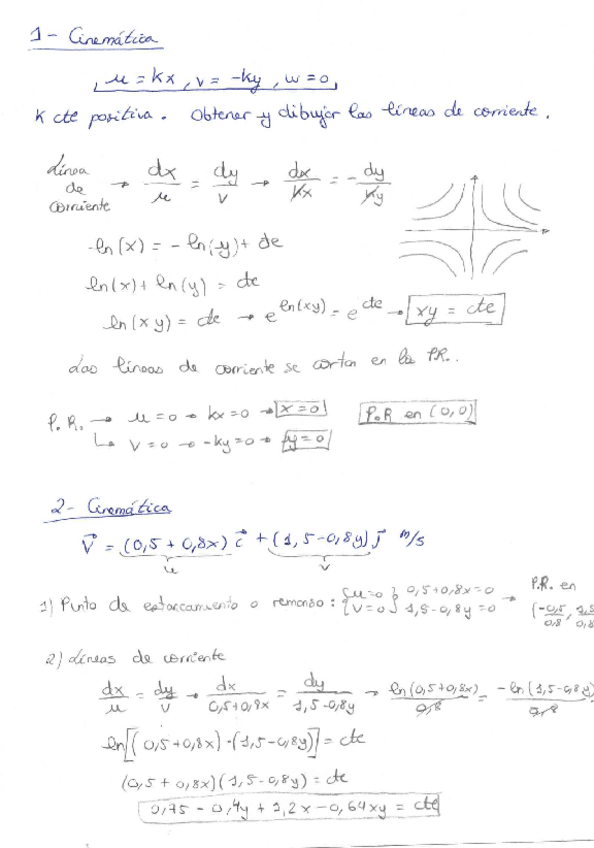 1- Cinemática
u = kx , v = -ky , w = 0,
K cte positiva. Obtener y dibujar las líneas de corriente.
Línea de corriente → dx/u = dy/v → dx/kx = - dy/ky
ln(x) = - ln(y) + cte
ln(x) + ln(y) = cte
ln(xy) = cte → e^ln(xy) = e^cte → xy = cte
Las líneas de corriente se cortan en la P.R..
P.R. → u = 0 → kx = 0 → x = 0 P.R en (0,0)
↳ v = 0 → -ky = 0 → y = 0
2- Cinemática
V⃗ = (0,5 + 0,8x) i⃗ + (1,5 - 0,8y) j⃗ m/s
u v
1) Punto de estancamiento o remanso: {u=0 v=0} 0,5+0,8x=0 1,5-0,8y=0 → P.R. en (-0,5/0,8, 1,5/0,8
2) Líneas de corriente
dx/u = dy/v → dx/0,5+0,8x = dy/1,5-0,8y → ln(0,5+0,8x)/0,8 = -ln(1,5-0,8y)/0,8
ln[(0,5+0,8x)·(1,5-0,8y)] = cte
(0,5 + 0,8x)(1,5 - 0,8y) = cte
0,75 - 0,4y + 1,2x - 0,64xy = cte